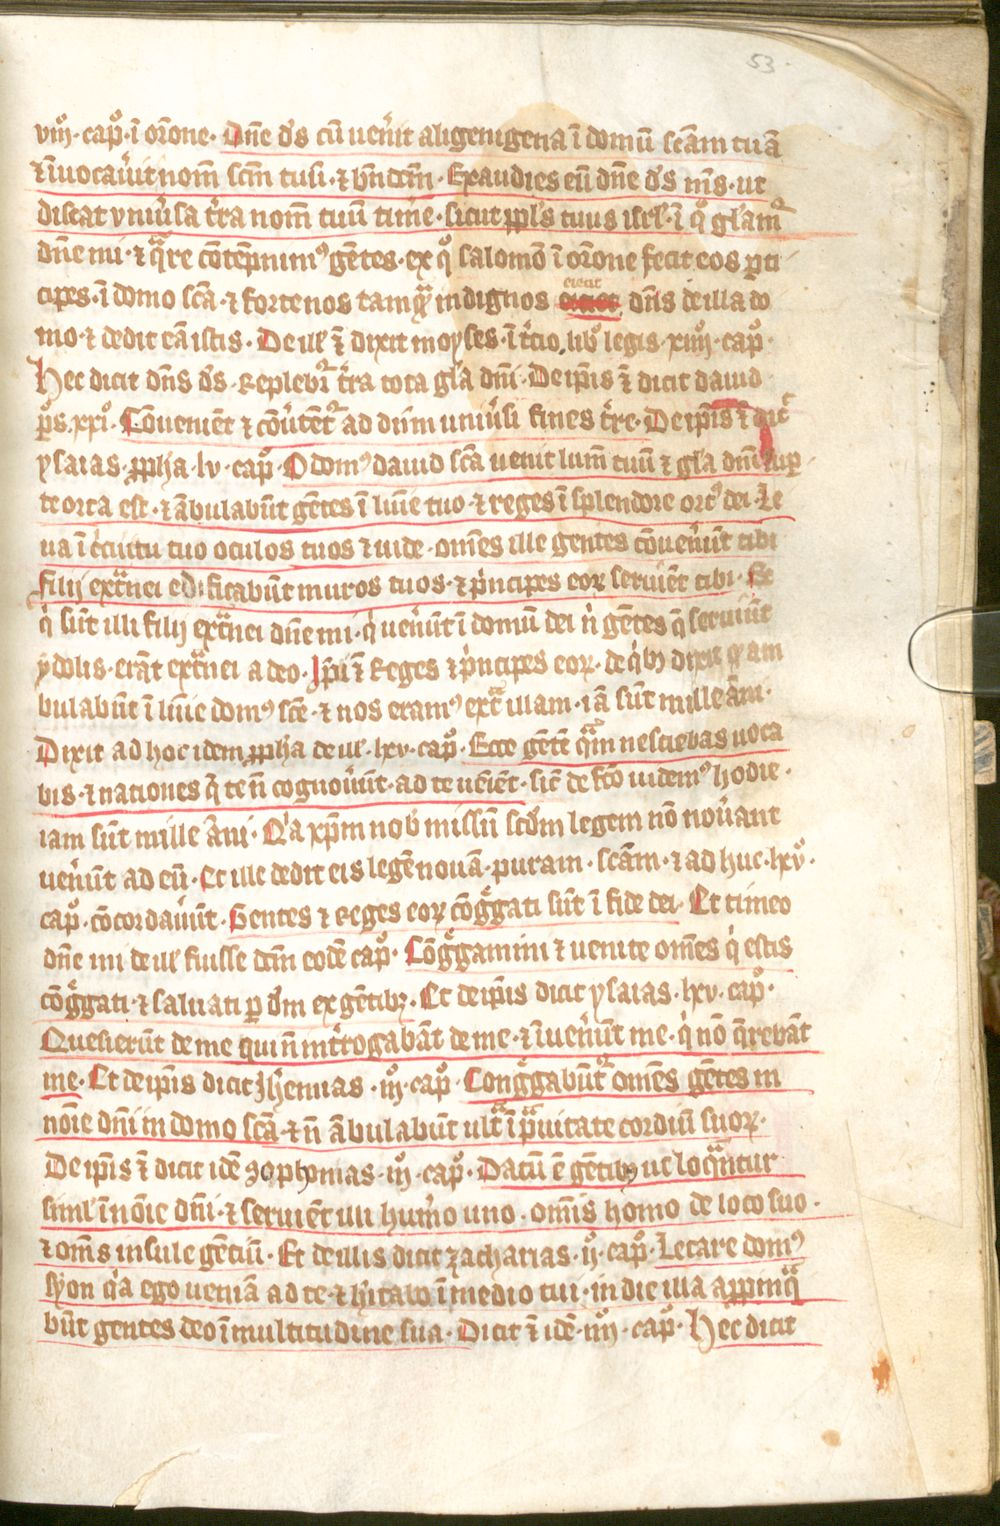 53
viijº · capº · ī or̄one · Dn̄e d̄s cū uen̄it aligenigena ī domū scām tuā
⁊ īuocau̾it nom̄ scm̄ tuū · ⁊ bn̄dcm̄ · Exaudies eū dn̄e d̄s nr̄s · ut
discat vniu̾sa t̾ra nom̄ tuū tim̾e · sicut ppl̄s tuus isrl̄ · ī qº gl̄am̾
dn̄e mi · ⁊ qͣre cōtēpnimꝰ gētes · ex qº salomō ī or̄one fecit eos ꝑti
cipes · ī domo scā · ⁊ forte nos tamqͣ indignos eiecit dn̄s de illa do
mo · ⁊ dedit eā istis · De ill̄ ē dixit moyses · ī t̾cio, libº legis · xiiijº capº ·
Hec dicit dn̄s d̄s · Replebr̾ t̾ra tota gl̄a dn̄i · De ip̄is ē dicit dauid
pº̄s · xxiº · Cōuenient ⁊ cōu̾tētr̾ ad dn̄m uniu̾si fines t̾re · De ip̄is ē dic̄
ysaias · ꝓpha · lv · capº · O domꝰ dauid scā uenit lum̄ tuū ⁊ gl̄a dn̄i sup̱
te orta est · ⁊ ābulabūt gētes ī lum̄e tuo · ⁊ reges ī splendore ortꝰ dei · Le
ua ī c̾cuitu tuo oculos tuos ⁊ uide · omēs ille gentes cōuen̾ūt tibi
filij extͣnei edificabūt muros tuos · ⁊ p̾ncipes eoꝝ seruiēt tibi · Et
q̾ sūt illi filij extͣnei dn̄e mi · q̾ uen̾ūt ī domū dei n̾ gētes q̄ seruiūt
ydolis · erāt extͣnei a deo · Ip̄i ē Reges ⁊ p̾ncipes eoꝝ · de q̾bꝫ dixit q̄ am
bulabūt ī lum̄e domꝰ scē · ⁊ nos eramꝰ extͣ illam · iā sūt mille āni ·
Dixit ad hoc idem ꝓpha de ill̄ · lxv · capº · Ecce gētē qͣm nesciebas uoca
bis · ⁊ nationes q̄ te n̄ cognou̾ūt · ad te ueīēt · sic̄ de fc̄o uidemꝰ hodie ·
iam sūt mille āni · Q̾a xp̄m nob̄ missū scd̄m legem nō nou̾ant
uen̾ūt ad eū · Et ille dedit eis legē nouā · puram · scām · ⁊ ad huc · lxvº ·
capº · cōcordau̾ūt · Gentes ⁊ Reges eoꝝ cōgͣgati sūt ī fide dei · Et timeo
dn̄e mi de ill̄ fuisse dcm̄ eodē capº · Cōgͣgamini ⁊ uenite omēs q̾ estis
cōgͣgati · ⁊ saluati ꝑ dm̄ ex gētibꝫ · Et de ip̄is dicit ysaias · lxv · capº ·
Quesierūt de me qui n̄ int̾rogabāt de me · ⁊ īuen̾ūt me · q̾ nō q̄rebāt
me · Et de ip̄is dicit Jhemias · iijº · capº · Congͣgabūtr̾ omēs gētes in
noīe dn̄i in domo scā · ⁊ n̄ ābulabūt ultͣ ī pͣuitate cordiū suoꝝ ·
De ip̄is ē dicit idē sophonias · iijº · capº · Datū ē gētibꝫ ut loqͣntur
siml̄ ī noīe dn̄i · ⁊ seruiēt illi hum̾o uno · omīs homo de loco suo ·
⁊ omēs insule gētiū · Et de illis dicit zacharias · ijº · capº · Letare domꝰ
syon q̾a ego ueniā ad te · ⁊ hītabo ī medio tui · in die illa appinqͣ
būt gentes deo ī multitudine sua · Dicit ē idē · iiijº · capº · Hec dicit